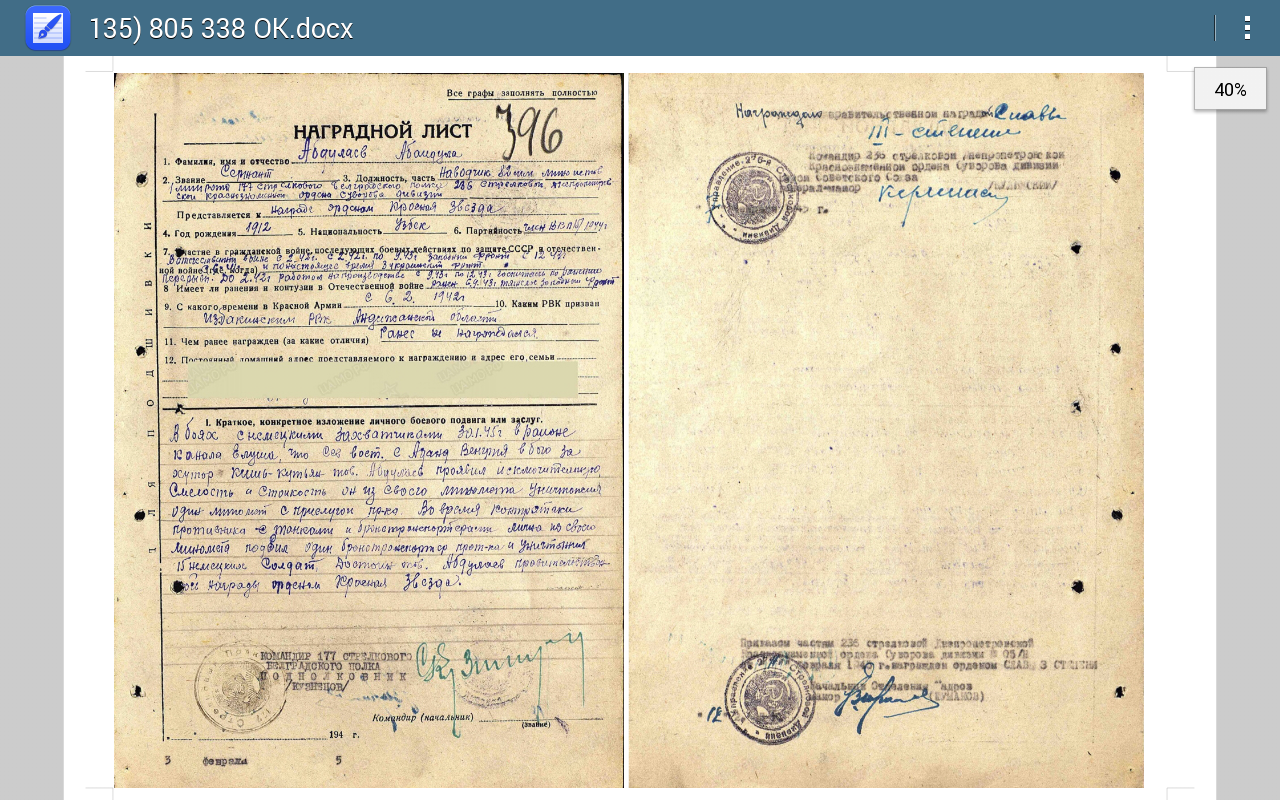 135) 805 338 OK.docx
40%
Все графы заполнять полностью
396
НАГРАДНОЙ ЛИСТ
1. Фамилия, имя и отчество Абдулаев
2. Звание Сержант 3. Должность, часть Наводчик 82 мм
177 стрелкового Белградского полка 236 стрелковой
ордена Суворова дивизии
Представляется к награде орденом Красная Звезда
4. Год рождения 1912 5. Национальность Узбек 6. Партийность член ВКП(б) 1944г
7. Участие в гражданской войне, последующих боевых действиях по защите СССР и отечествен-
ной войне (где, когда) и по настоящее время 3 украинский фронт.
До 2.42г работал на производстве с 9.43г по 12.43г
8 Имеет ли ранения и контузии в Отечественной войне ранен 6.9.43г западной фронт
9. С какого времени в Красной Армии с 6. 2. 1942г 10. Каким РВК призван
РВК Андижанской области
11. Чем ранее награжден (за какие отличия) Ранее не награждался.
12. Постоянный домашний адрес представляемого к награждению и адрес его семьи
I. Краткое, конкретное изложение личного боевого подвига или заслуг.
В боях с немецкими захватчиками 30.1.45г в районе
канала что сев вост. с Аданд Венгрия в бою за
хутор тов. Абдулаев проявил исключительную
Смелость и Стойкость он из своего миномета Уничтожил
один миномет с прислугой пр-ка. Во время контратаки
противника с танками и бронетранспортерами лично из своего
миномета подбил один бронетранспортер прот-ка и Уничтожил
15 немецких Солдат. Достоин тов. Абдулаев правительствен-
ной награды орденом Красная Звезда.
КОМАНДИР 177 СТРЕЛКОВОГО
БЕЛГРАДСКОГО ПОЛКА
ПОДПОЛКОВНИК
/КУЗНЕЦОВ/
Командир (начальник)
(звание)
194 г.
3 февраля 5
ДЛЯ ПОДШИВКИ
Награждаю правительственной наградой Славы
III - степени
Командир 236 стрелковой Днепропетровской
Краснознаменной ордена Суворова дивизии
Герой Советского Союза
генерал-майор /КУЛИЖСКИЙ/
Приказом частям 236 стрелковой Днепропетровской
Краснознаменной ордена Суворова дивизии № 05/Н
февраля 1945 г. награжден орденом СЛАВЫ 3 СТЕПЕНИ
Начальник Отделения кадров
майор